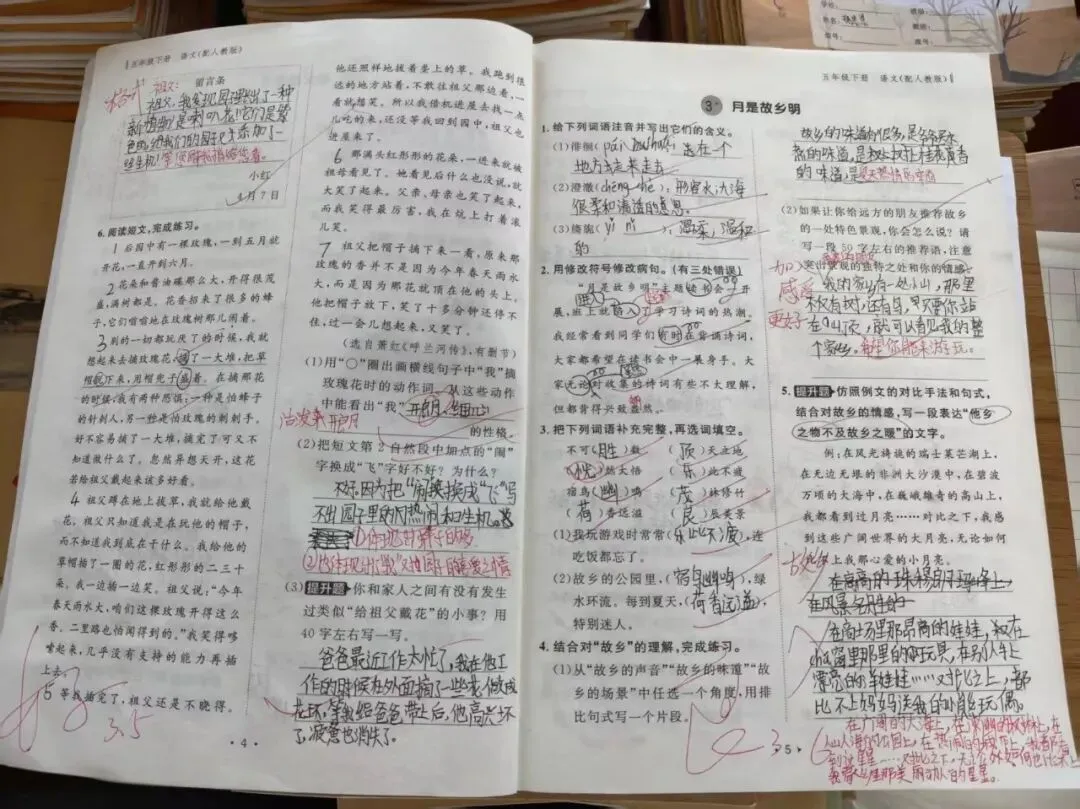 五年级下册 语文(配人教版)
留言条
祖父：
小红
6. 阅读短文，完成练习。
1 后园中有一棵玫瑰，一到五月就
开花，一直开到六月。
2 花朵和酱油碟那么大，开得很茂
盛，满树都是。花香招来了很多的蜂
子，它们嗡嗡地在玫瑰树那儿闹着。
3 别的一切都玩厌了的时候，我就
想起来去摘玫瑰花，摘了一大堆，把草
帽脱下来，用帽兜子盛着。在摘那花
的时候，我有两种恐惧：一种是怕蜂子
的针刺人，另一种是怕玫瑰的刺刺手。
好不容易摘了一大堆，摘完了可又不
知道做什么了。忽然异想天开，这花
若给祖父戴起来该多好看。
4 祖父蹲在地上拔草，我就给他戴
花。祖父只知道我是在玩他的帽子，
而不知道我到底在干什么。我给他的
草帽插了一圈的花，红彤彤的二三十
朵。我一边插一边笑。祖父说：“今年
春天雨水大，咱们这棵玫瑰开得这么
香。二里路也怕闻得到的。”我笑得哆
嗦起来，几乎没有支持的能力再插
上去。
5 等我插完了，祖父还是不晓得。
3.5
他还照样地拔着垄上的草。我跑到很
远的地方站着，不敢往祖父那边看，一
看就想笑。所以我借机进屋去找一点
儿吃的来，还没等我回到园中，祖父也
进屋来了。
6 那满头红彤彤的花朵，一进来就被
祖母看见了。她看见后什么也没说，就
大笑了起来。父亲、母亲也笑了起来，
而我笑得最厉害，我在炕上打着滚
儿笑。
7 祖父把帽子摘下来一看，原来那
玫瑰的香并不是因为今年春天雨水
大，而是因为那花就顶在他的头上。
他把帽子放下，笑了十多分钟还停不
住，过一会儿想起来，又笑了。
(选自萧红《呼兰河传》，有删节)
(1)用“○”圈出画横线句子中“我”摘
玫瑰花时的动作词，从这些动作
中能看出“我”
的性格。
(2)把短文第2自然段中加点的“闹”
字换成“飞”字好不好？为什么？
不好。因为把“闹”换成“飞”写
不出园子里的热闹和生机。
(3) 提升题 你和家人之间有没有发生
过类似“给祖父戴花”的小事？用
40字左右写一写。
爸爸最近工作太忙了，我在他工
作的时候在外面摘了一些花，做成
花环，等我给爸爸带上后，他高兴坏
了，疲惫也消失了。
· 4 ·
五年级下册 语文(配人教版)
3 月是故乡明
1. 给下列词语注音并写出它们的含义。
(1)徘徊(pái huái)：总在一个
地方走来走去
(2)澄澈(chéng chè)：形容水
(3)旖旎(yǐ nǐ)：温柔，温和
的
2. 用修改符号修改病句。(有三处错误)
“月是故乡明”主题读书会召开
展，班上就
学习诗词的热潮。
我经常看到同学们有时在背诵诗词，
大家都希望在读书会中一展身手。大
家无论对收集的诗词有些不大理解，
但都背得兴致盎然。
3. 把下列词语补充完整，再选词填空。
不可(胜)数 (顶)天立地
(恍)然大悟 (乐)此不疲
宿鸟(幽)鸣 (茂)林修竹
(荷)香远溢 (良)辰美景
(1)我玩游戏时常常(乐此不疲)，连
吃饭都忘了。
(2)故乡的公园里，(宿鸟幽鸣)，绿
水环流。每到夏天，(荷香远溢)，
特别迷人。
4. 结合对“故乡”的理解，完成练习。
(1)从“故乡的声音”“故乡的味道”“故
乡的场景”中任选一个角度，用排
比句式写一个片段。
故乡的味道很多，是爷爷
的味道，是
的味道，是
(2)如果让你给远方的朋友推荐故乡
的一处特色景观，你会怎么说？请
写一段50字左右的推荐语，注意
突出景观的独特之处和你的情感。
我的家乡有一处小山，那里
不仅有树，还有鸟，只要你站
在小山顶，就可以看见我的整
个家乡。希望你能来游玩。
加
感受
更好
5. 提升题 仿照例文的对比手法和句式，
结合对故乡的情感，写一段表达“他乡
之物不及故乡之暖”的文字。
例：在风光旖旎的瑞士莱芒湖上，
在无边无垠的非洲大沙漠中，在碧波
万顷的大海中，在巍峨雄奇的高山上，
我都看到过月亮……对比之下，我感
到这些广阔世界的大月亮，无论如何
比不上我那心爱的小月亮。
在商场里那昂贵的娃娃，
……对比之上，都
比不上妈妈送我的小熊玩偶。
· 5 ·